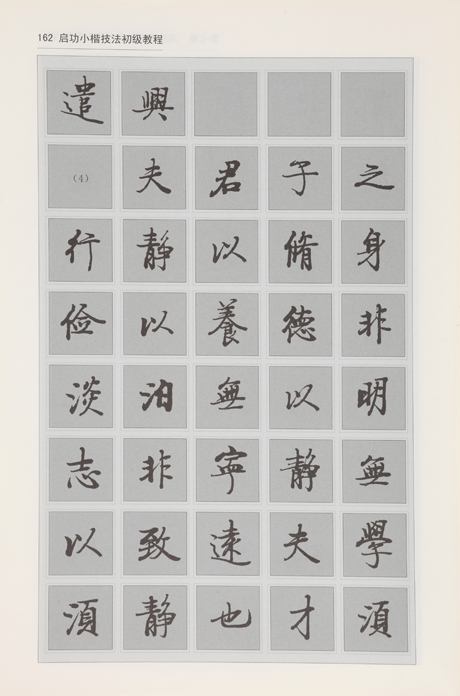 162 启功小楷技法初级教程
遣興
（4）夫君子之
行静以脩身
俭以養德非
淡泊無以明
志非寧静無
以致遠夫學
須静也才須